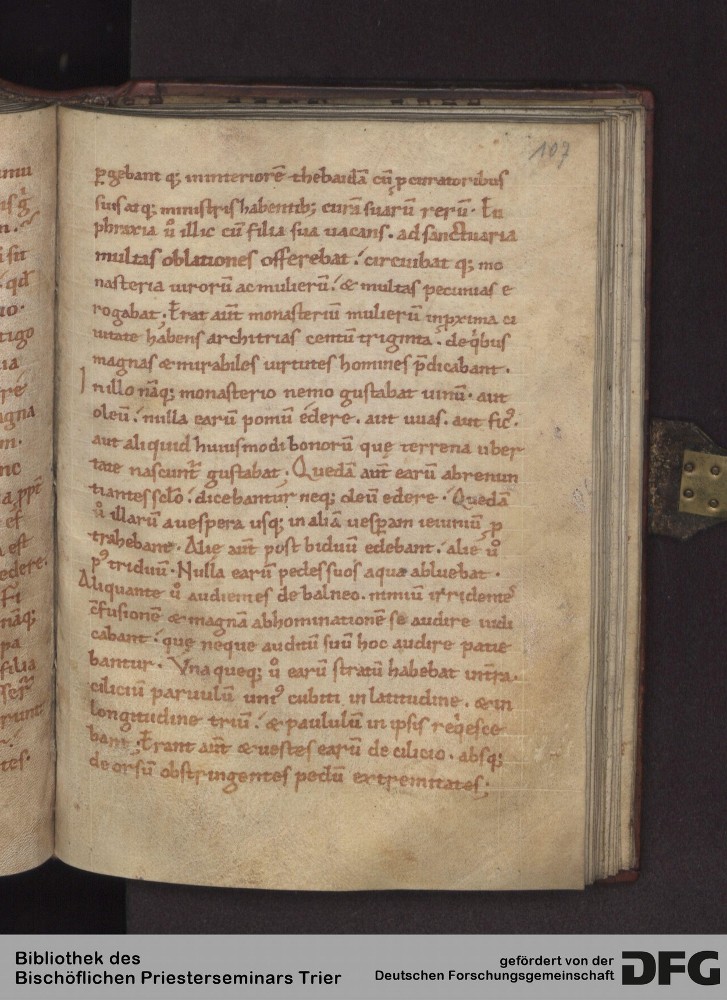 107
ꝑgebant q; ininteriorē thebaidā cū ꝓcuratoribus
suis atq; ministris habentib; curā suarū rerū. Eu
phraxia ů illic cū filia sua uacans. ad sanctuaria
multas oblationes offerebat. circuibat q; mo
nasteria uirorū ac mulierū. & multas pecunias e
rogabat. Erat aūt monasteriū mulierū inꝓxima ci
uitate habens architrias centū triginta. de qͥbus
magnas & mirabiles uirtutes homines p̄dicabant.
Inillo nāq; monasterio nemo gustabat uinū. aut
oleū. nulla earū pomū edere. aut uuas. aut ficꝰ.
aut aliquid huiusmodi bonorū quę terrena uber
tate nascunt᷑ gustabat. Quedā aūt earū abrenun
tiantes sclo. dicebantur neq; oleū edere. Quedā
ů illarū auespera usq; in aliā uesꝑam ieiuniū ꝓ
trahebant. Alie aūt post biduū edebant. alie ů
pꝰ triduū. Nulla earū pedes suos aqua abluebat.
Aliquante ů audientes de balneo. nimiū irridentes
c̄fusionē & magnā abhominationē se audire iudi
cabant. quę neque auditū suū hoc audire patie
bantur. Vna queq; ů earū stratū habebat in t̄ra.
ciliciū paruulū uniꝰ cubiti in latitudine. & in
longitudine triū. & paululū in ipsis reqͥesce
bant. Erant aūt & uestes earū de cilicio. absq;
deorsū obstringentes pedū extremitates;
Bibliothek des
Bischöflichen Priesterseminars Trier
gefördert von der
Deutschen Forschungsgemeinschaft
DFG